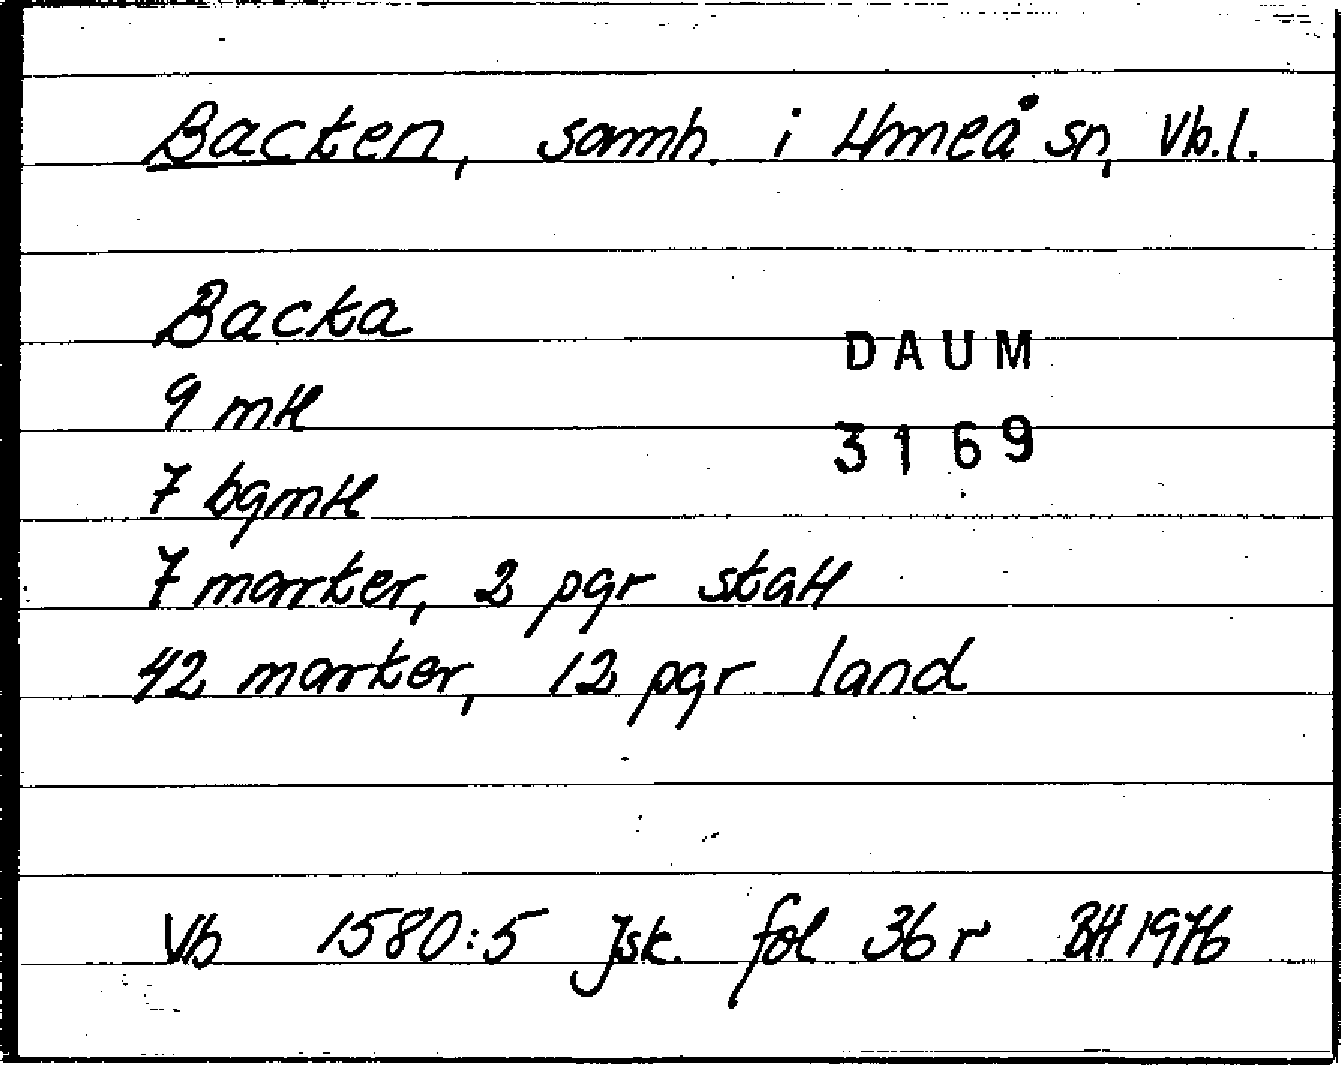 Backen, samh. i Umeå sn, Vb.l.
Backa
DAUM
9 mtl
3169
7 bgmtl
7 marker, 2 pgr skatt
42 marker, 12 pgr land
Vb 1580:5 Jsk. fol 36 r BH 1976